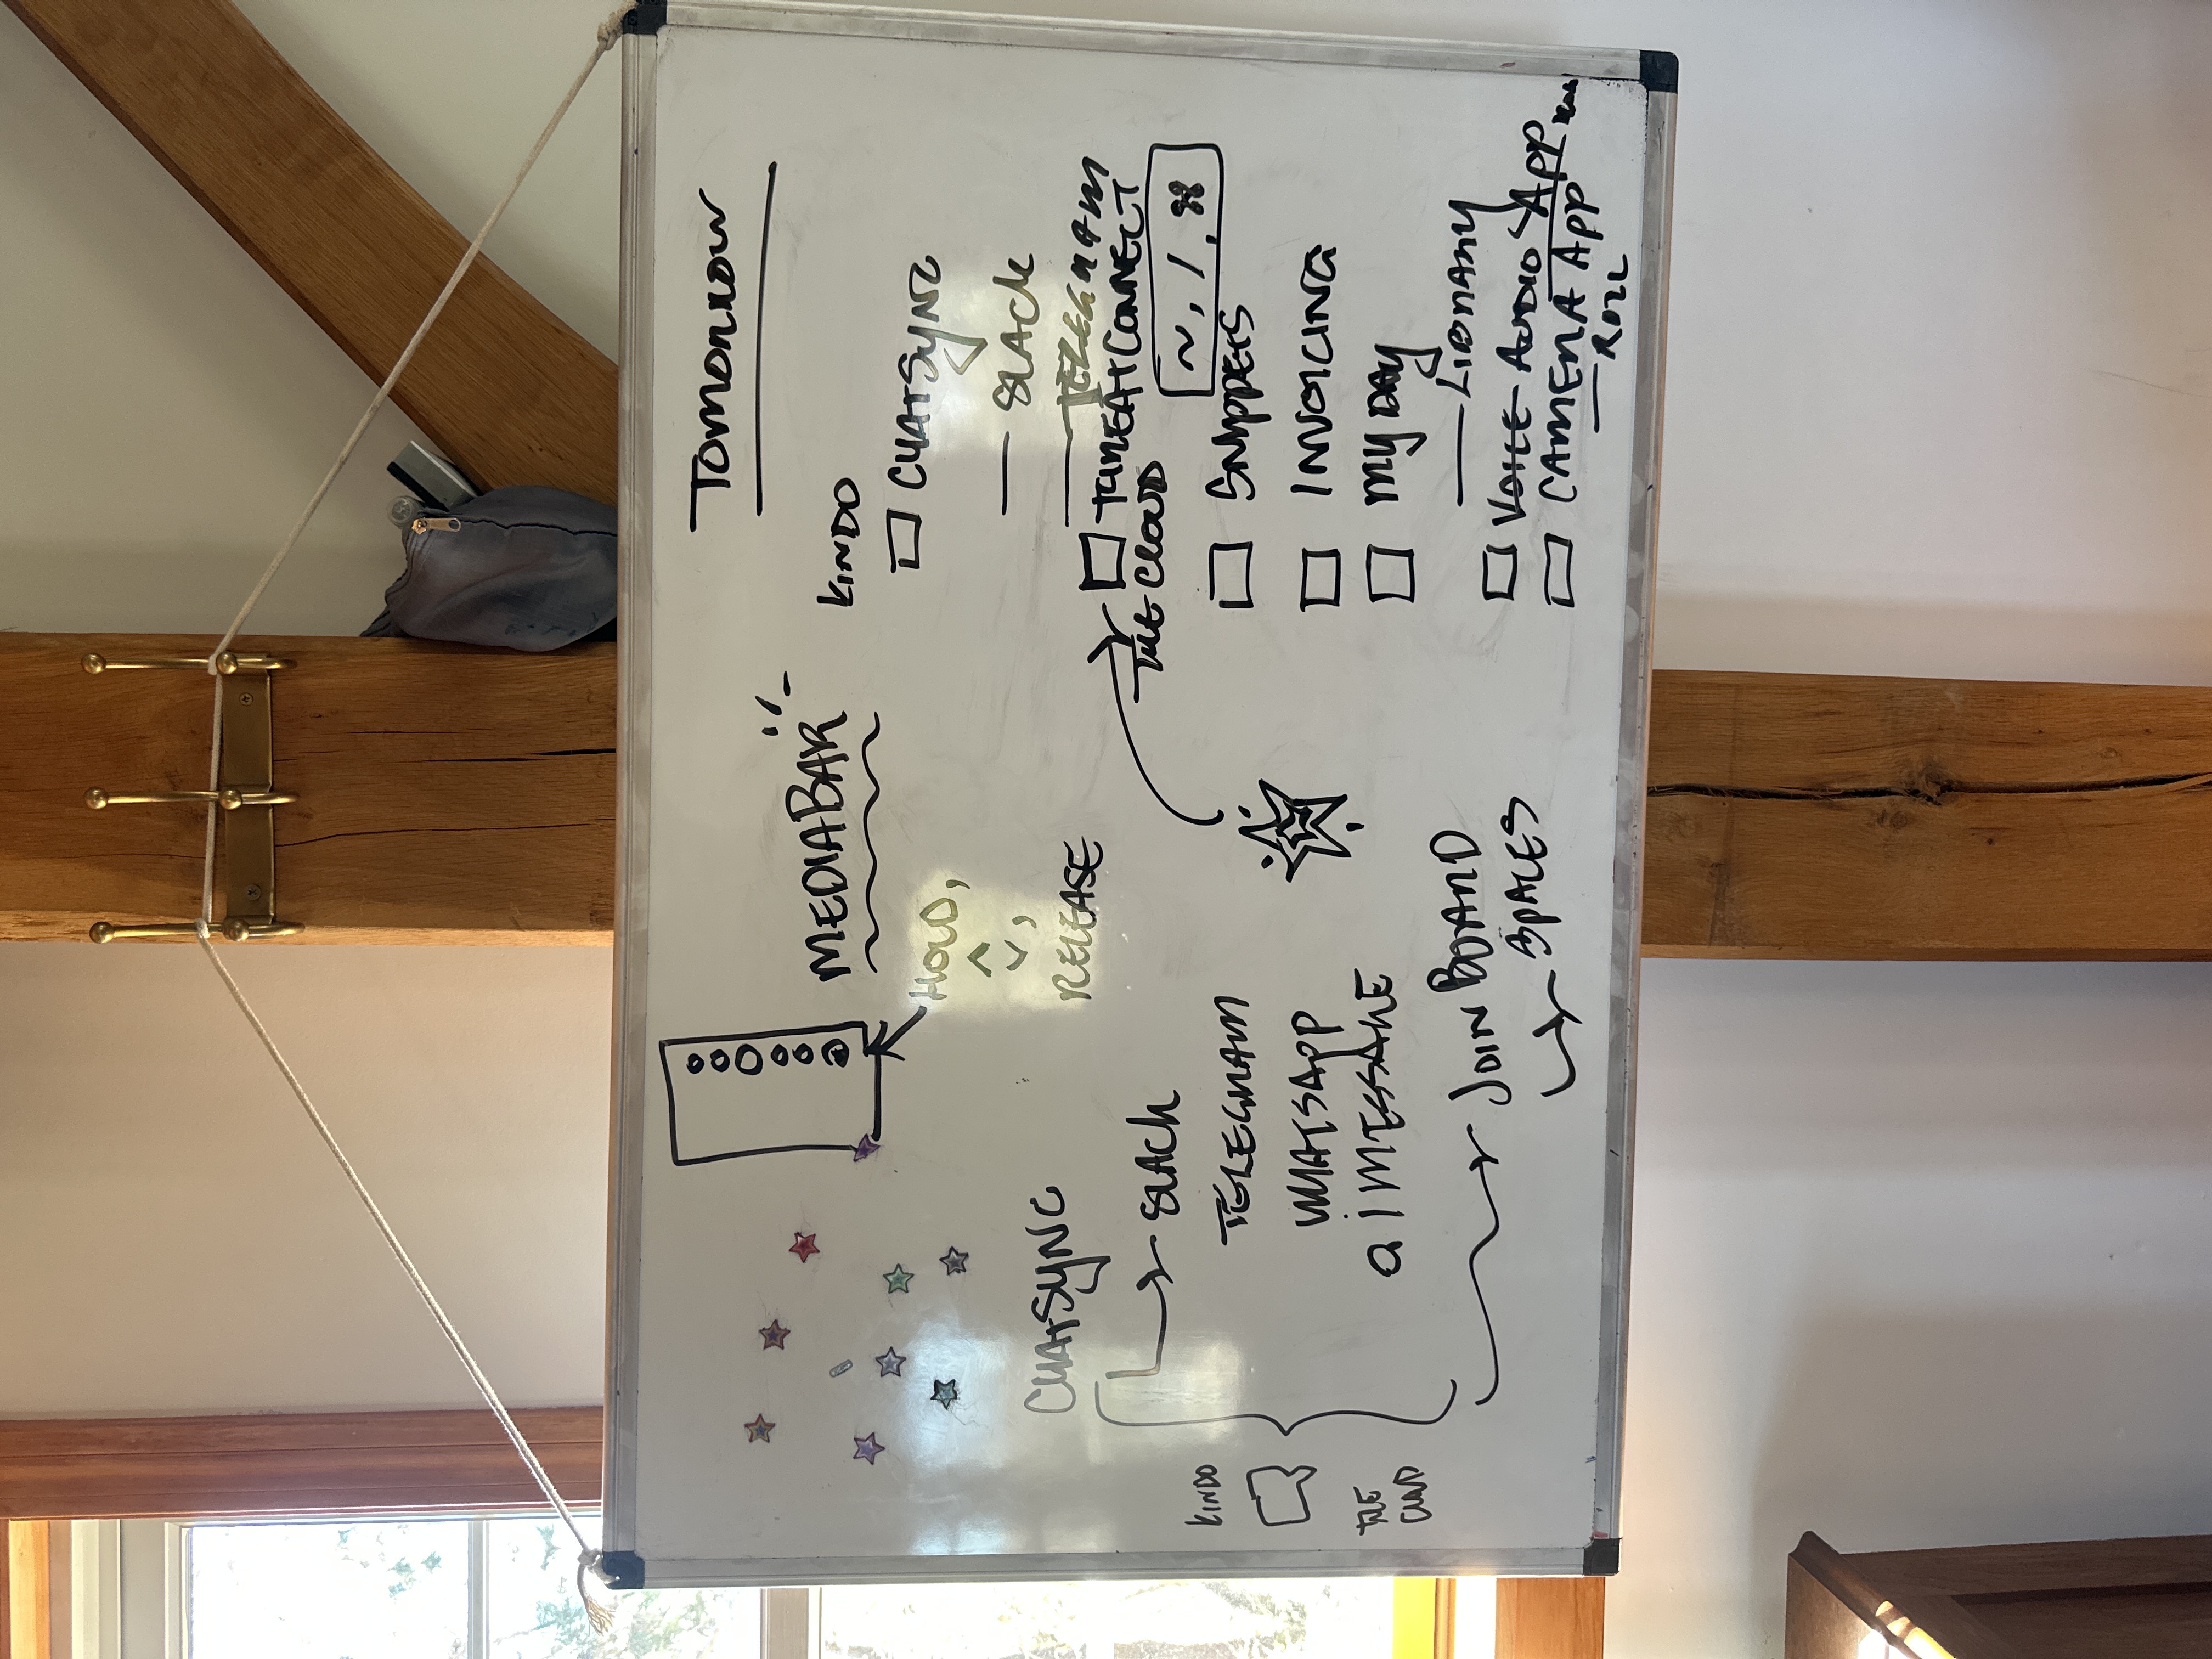 MEDIABAR
HOLD,
RELEASE
CHATSYNC
SLACK
TELEGRAM
WHATSAPP
IMESSAGE
KINDO
THE
CLOUD
JOIN BOARD
SPACES
TOMORROW
KINDO
CHATSYNC
— SLACK
— TELEGRAM
THREAT CONNECT
THE CLOUD
~, /, ⌘
SNIPPETS
INVOICING
MY DAY
— LIBRARY
VOICE AUDIO APP
CAMERA APP
— ROLL